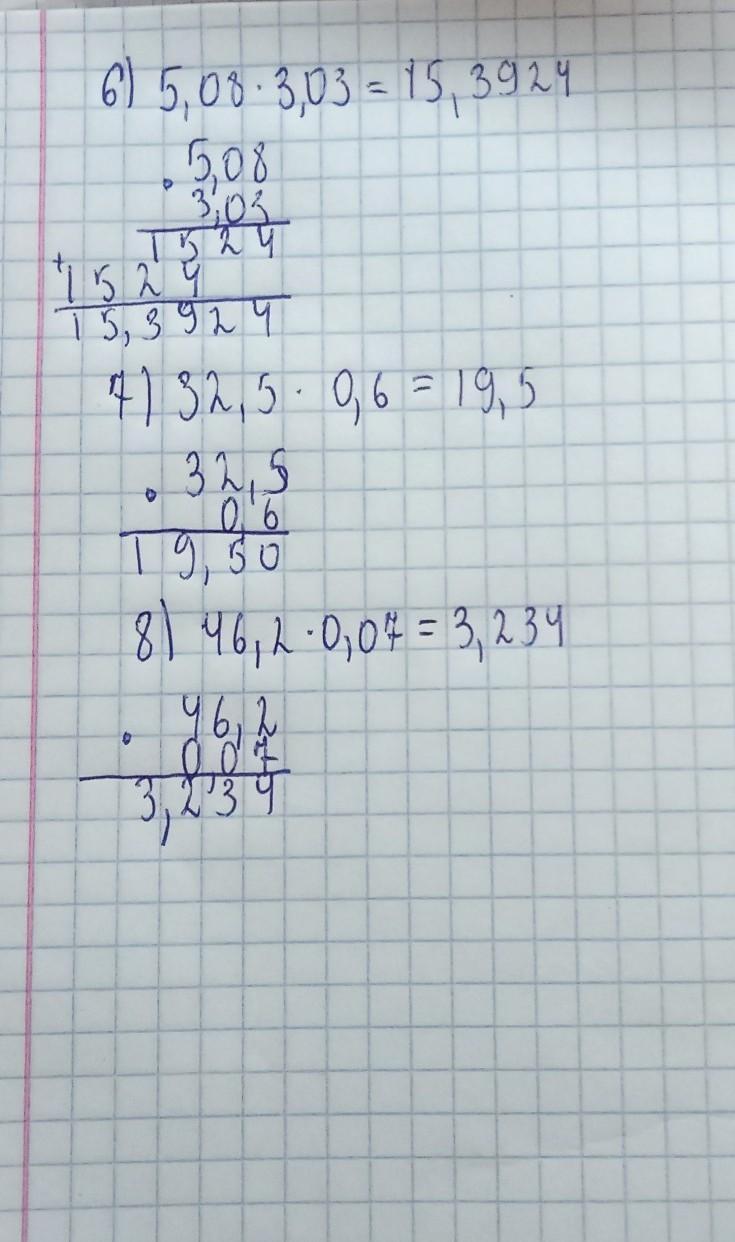 6) 5,08 · 3,03 = 15,3924
. 5,08
3,03
1524
+
1524
15,3924
7) 32,5 · 0,6 = 19,5
. 32,5
0,6
19,50
8) 46,2 · 0,07 = 3,234
. 46,2
0,07
3,234